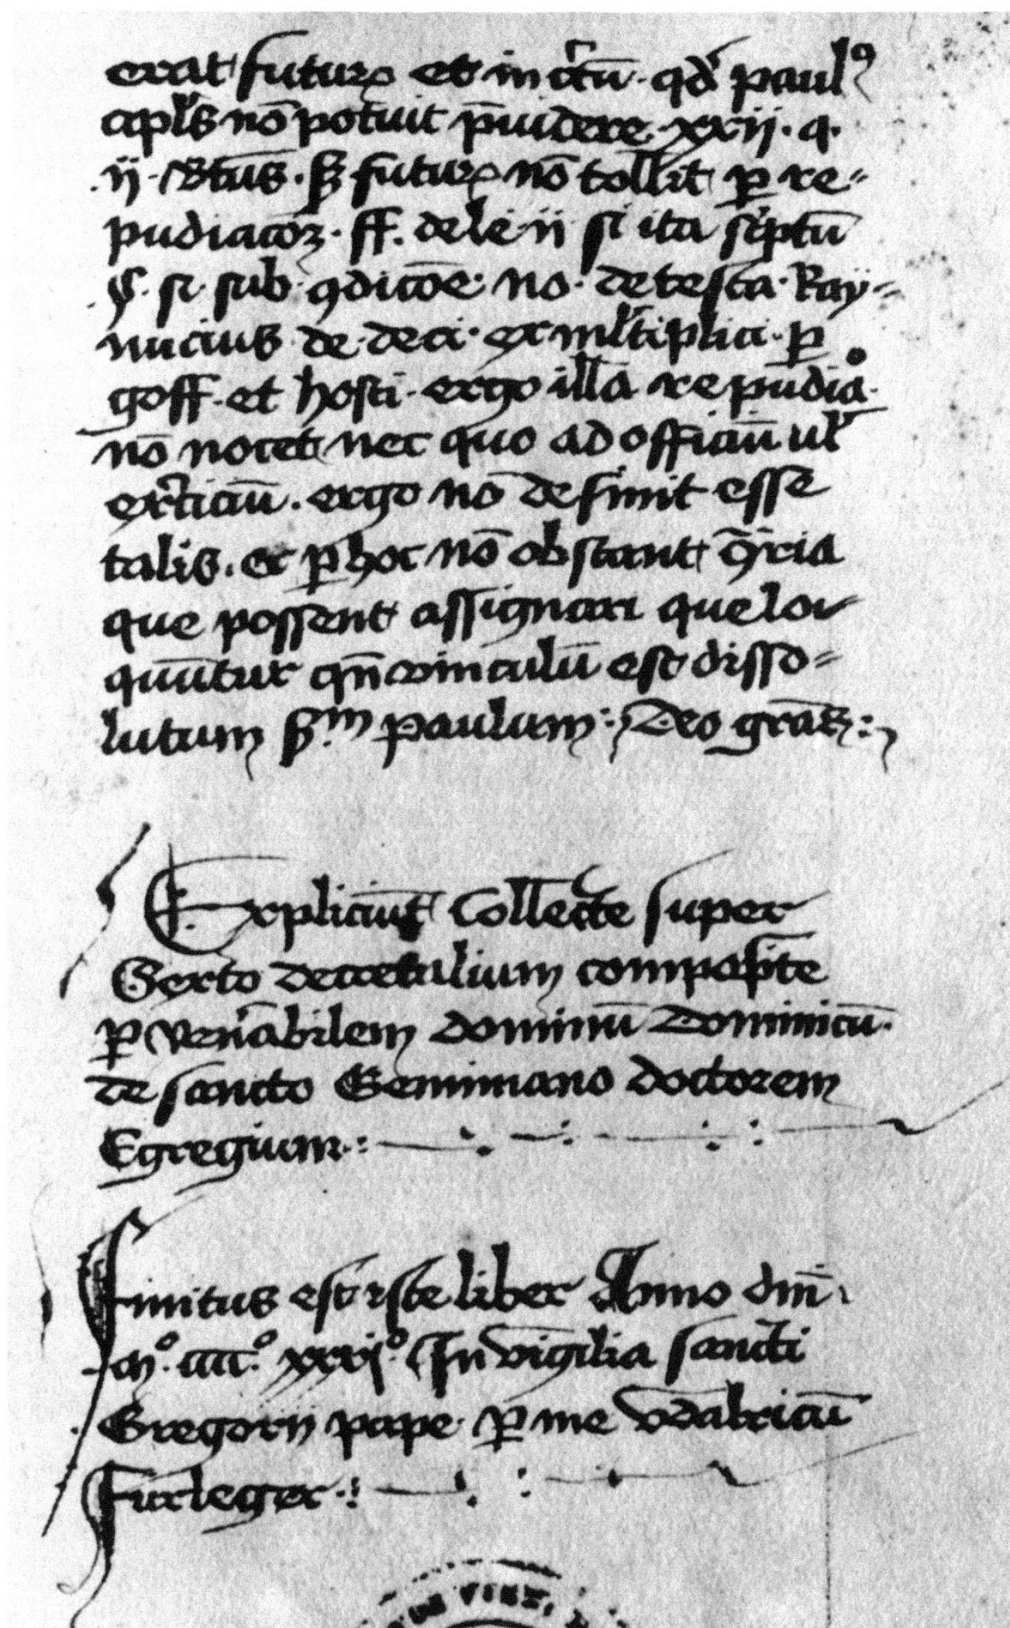 erat futurꝝ et incͬtū · qd' paulꝰ
apl's nō potuit p̄uidere · xxii · q ·
· ii · Btūs · sꝫ futurꝝ nō tollit ꝑ re=
pudiacōꝫ · ff. de le · ii si ita sc'ptū
§ · si sub ꝯdicōe · no · de testa · Ray=
nucius de deci · ex ml'tiplici · ꝑ
goff · et hosti · ergo illa repudiaº ·
nō nocet nec quo ad officiū ul'
exͬciciū . ergo nō desinit esse
talis . et ꝑ hoc nō obstant ꝯͬria
que possent assignari que lo
quūtur qn̄ vinculū est disso=
lutum sꝫm paulum : Deo gr̄as :
Expliciūt Collecte super
Sexto decretalium composite
ꝑ ven'abilem dominū Dominicū ·
de sancto Geminiano doctorem
Egregium :
Finitus est iste liber Anno dn̄i
mº · cccc.º xxxiº In vigilia sancti
Gregorii pape · ꝑ me vdalricū
Furleger :